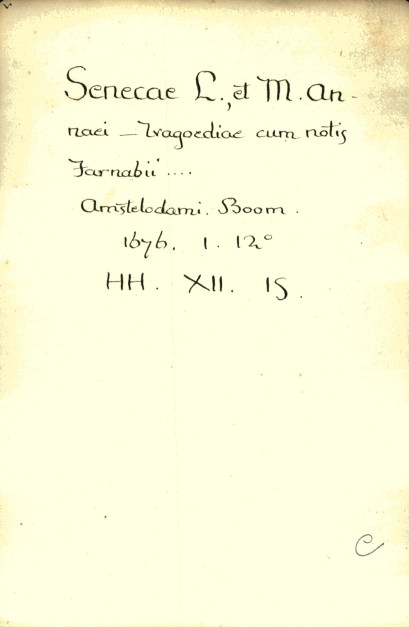 Senecae L., et M. An-
naei – Tragoediae cum notis
Farnabii ....
Amstelodami. Boom.
1676. 1. 12°
HH. XII. 15.
C